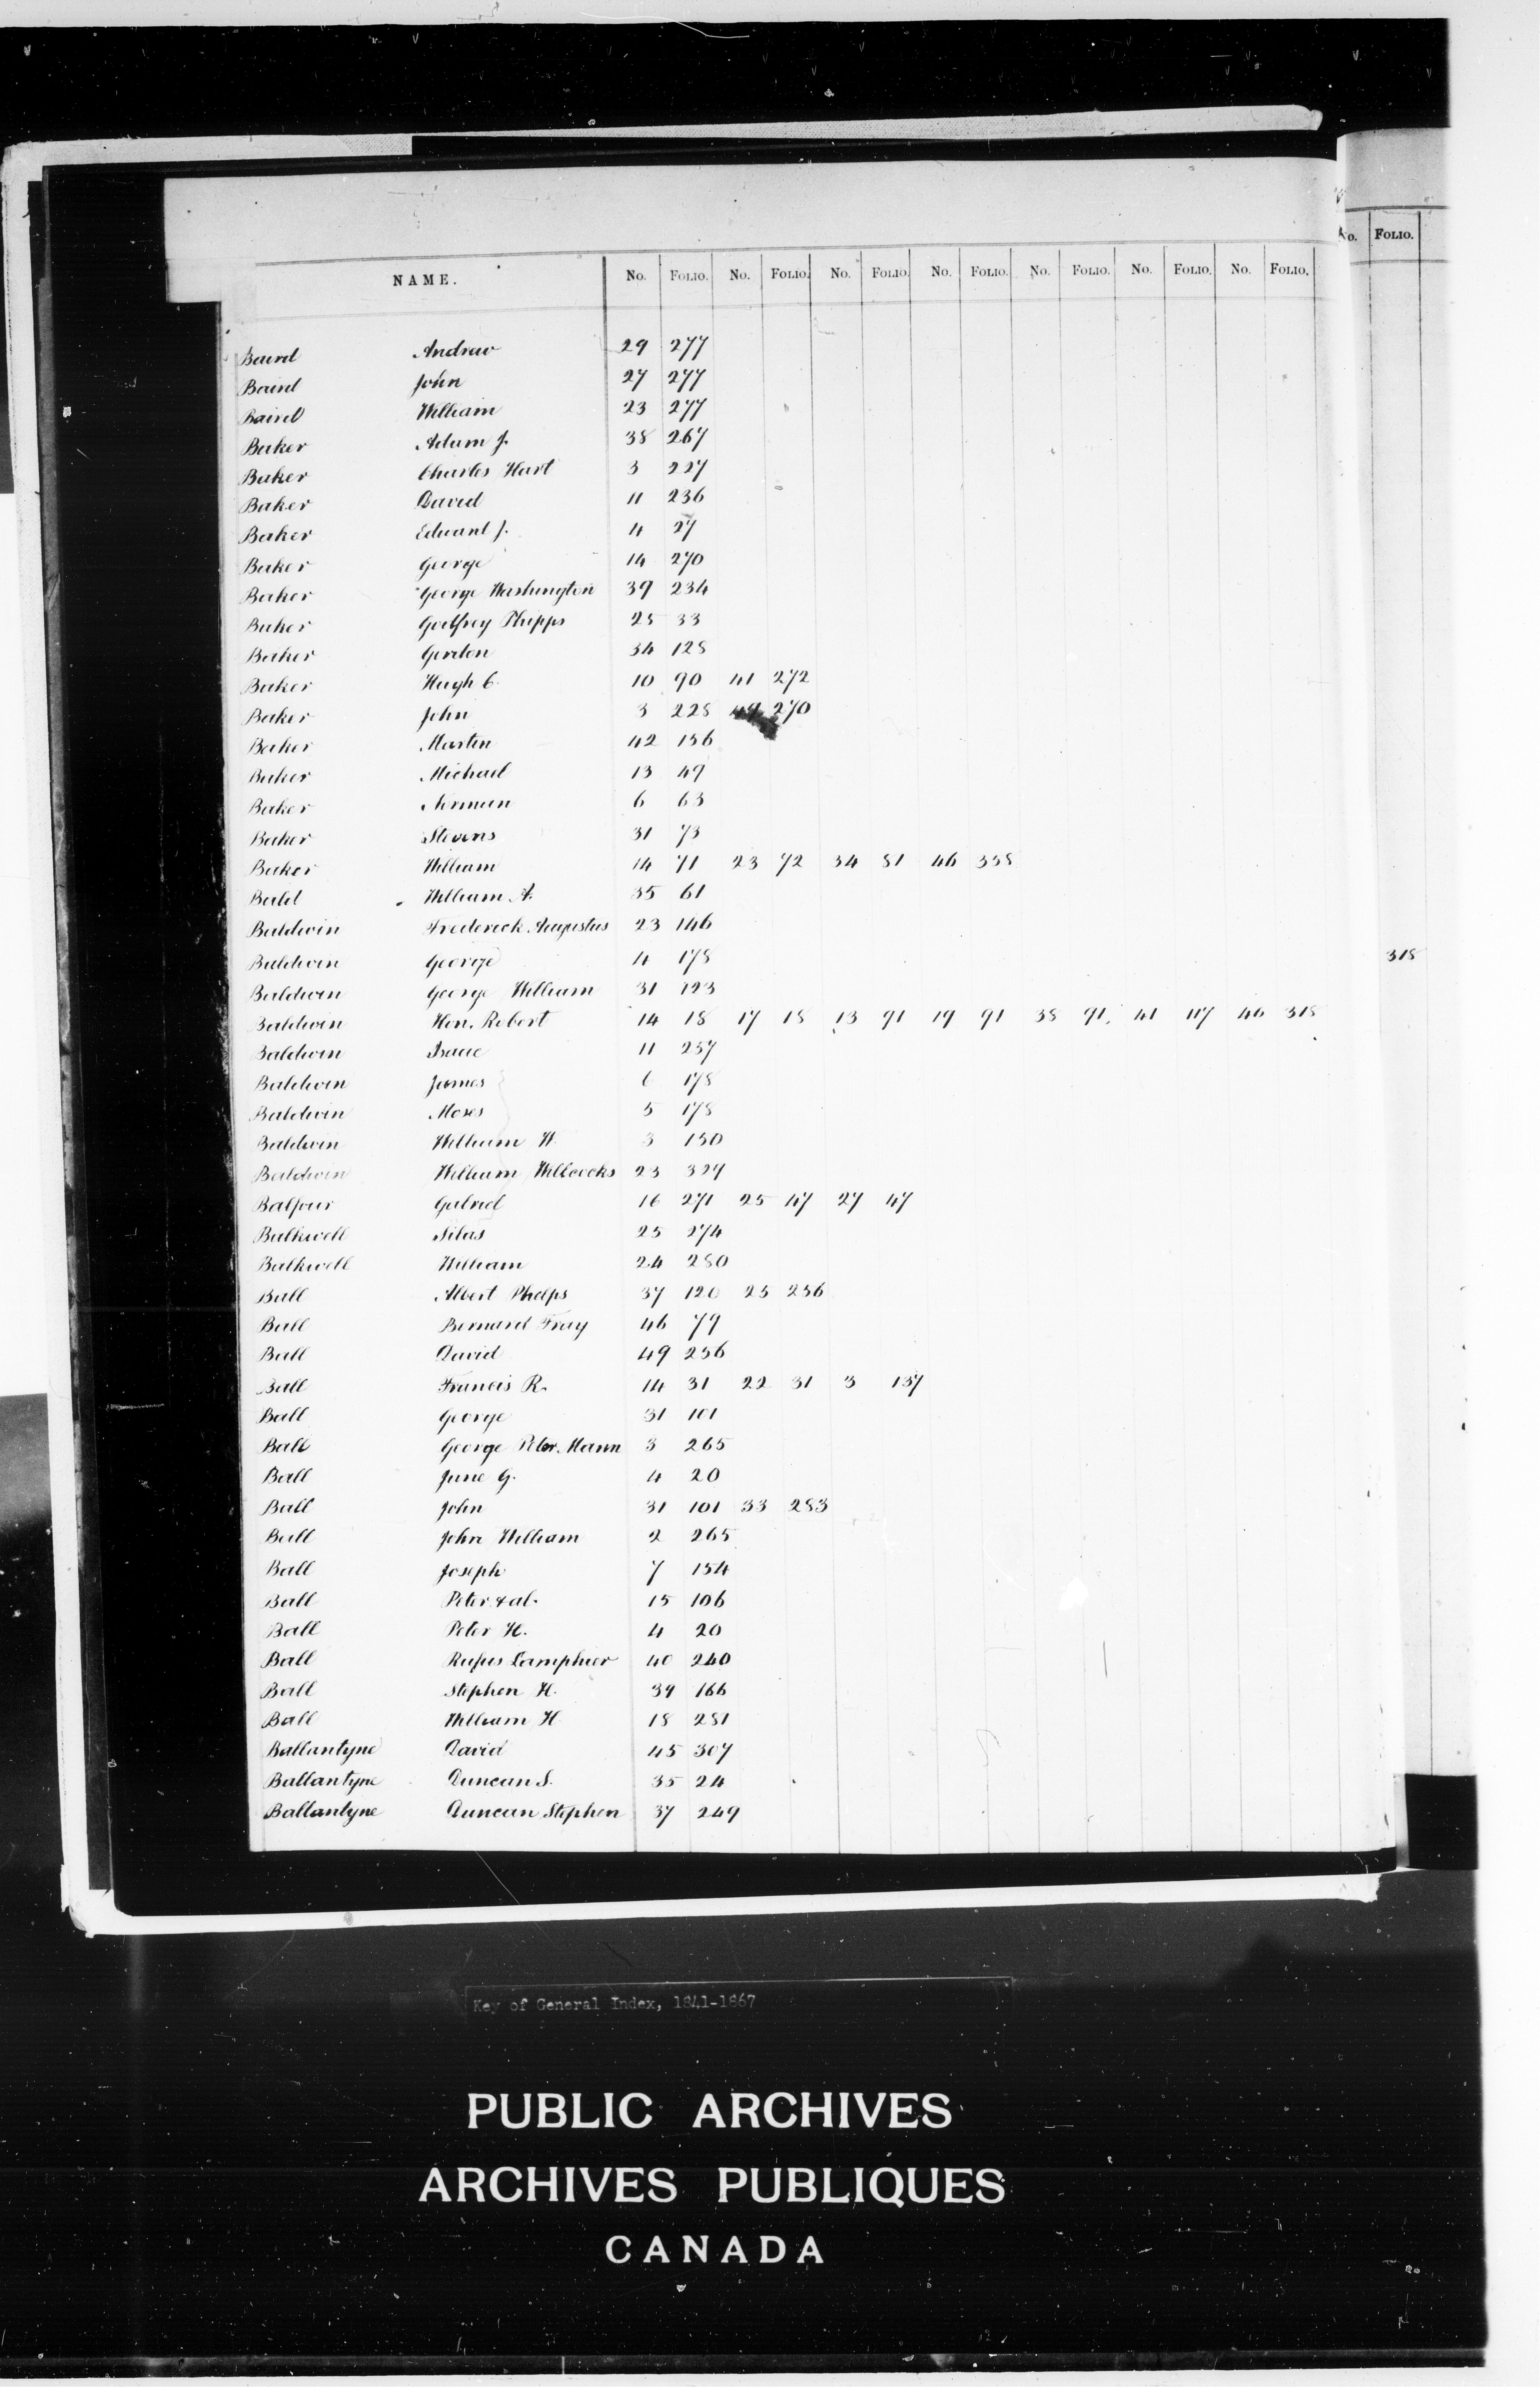 No. FOLIO.
NAME. No. FOLIO. No. FOLIO. No. FOLIO. No. FOLIO. No. FOLIO. No. FOLIO. No. FOLIO.
Baird Andrew 29 277
Baird John 27 277
Baird William 23 277
Baker Adam J. 38 267
Baker Charles Hart 3 227
Baker David 11 236
Baker Edward J. 4 27
Baker George 14 270
Baker George Washington 39 234
Baker Godfrey Phipps 25 33
Baker Gordon 34 128
Baker Hugh C. 10 90 41 272
Baker John 3 228 49 270
Baker Martin 42 156
Baker Michael 13 49
Baker Norman 6 63
Baker Stevens 31 73
Baker William 14 71 23 72 34 81 46 338
Bald William A. 35 61
Baldwin Frederick Augustus 23 146
Baldwin George 4 178
318
Baldwin George William 31 123
Baldwin Hon. Robert 14 18 17 18 13 91 19 91 38 91 41 117 46 318
Baldwin Isaac 11 237
Baldwin James 6 178
Baldwin Moses 5 178
Baldwin William W. 3 130
Baldwin William Willcocks 23 327
Balfour Gabriel 16 271 25 47 27 47
Balkwell Silas 25 274
Balkwell William 24 280
Ball Albert Phelps 37 120 25 256
Ball Bernard Fray 46 79
Ball David 49 256
Ball Francis R. 14 31 22 31 3 137
Ball George 31 101
Ball George Peter Mann 3 265
Ball Jane G. 4 20
Ball John 31 101 33 283
Ball John William 2 265
Ball Joseph 7 154
Ball Peter & al. 15 106
Ball Peter H. 4 20
Ball Rufus Lamphier 40 240
Ball Stephen H. 39 166
Ball William H. 18 281
Ballantyne David 45 307
Ballantyne Duncan S. 35 24
Ballantyne Duncan Stephen 37 249
Key of General Index, 1841-1867
PUBLIC ARCHIVES
ARCHIVES PUBLIQUES
CANADA